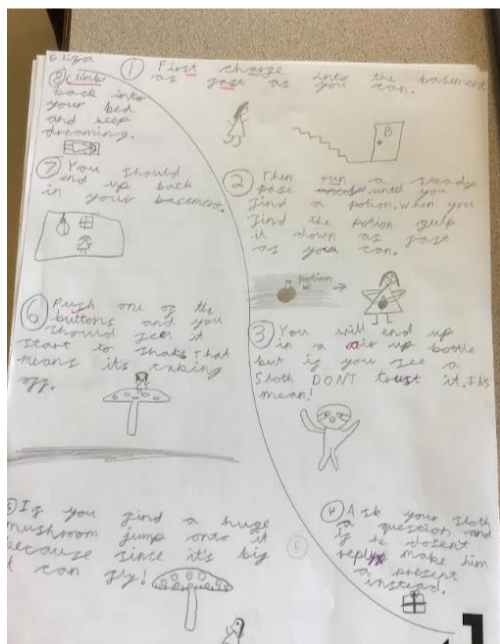 Eliza
① First charge
as fast as into the basement
as you can.
B
② Then run a steady
pase until you
find a potion. When you
find the potion gulp
it down as fast
as you can.
potion
③ You will end up
in a air up bottle
but if you see a
Sloth DONT trust it. It's
mean!
④ Ask your sloth
a question and
if he dosent
reply make him
a present
instead.
⑤
If you find a huge
mushroom jump onto it
because since it's big
it can fly!
⑥ Push one of the
buttons and you
should feel it
start to shake that
means it's taking
off.
⑦ You should
end up back
in your basement.
⑧ Climb
back into
your bed
and keep
dreaming.
1